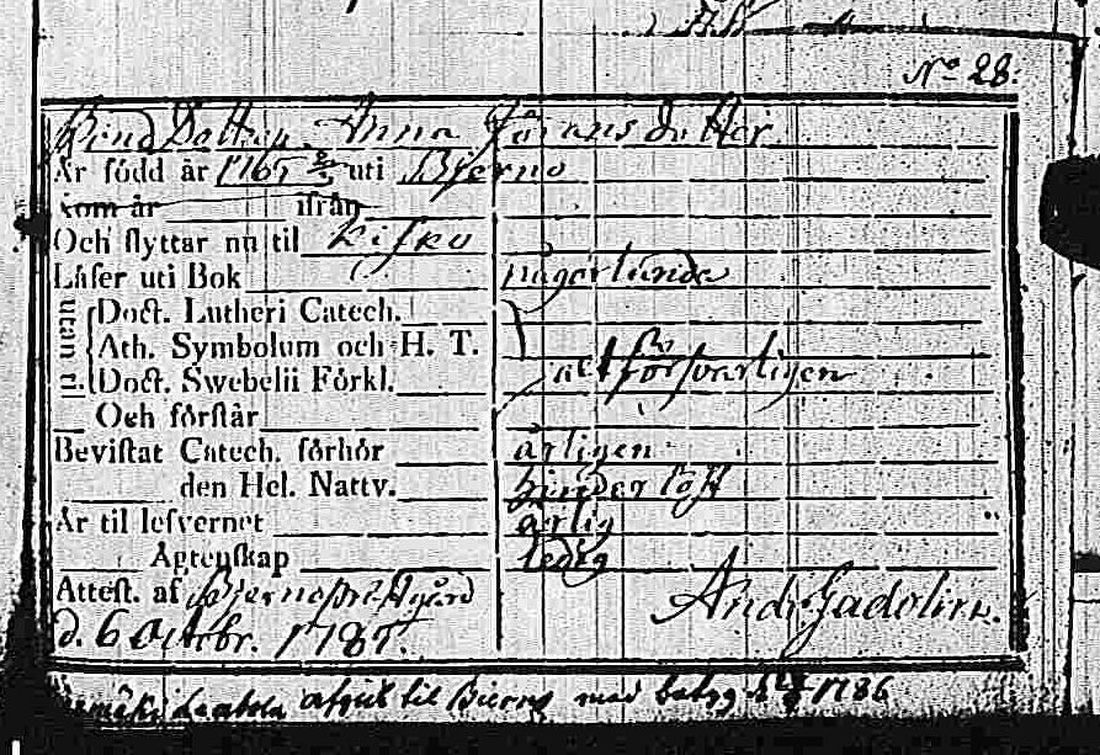 No 28.
Anna Jöransdotter
Är född år 1765 uti Bjerno
kom år ifrån
Och flyttar nu til Kisko
Läser uti Bok någorlunda
utan
Doct. Lutheri Catech.
Ath. Symbolum och H. T.
Doct. Swebelii Förkl.
alt försvarligen
Och förstår
Bevistat Catech. förhör årligen
den Hel. Nattv. hinderlöst
Är til lefvernet ärlig
Ägtenskap ledig
Attest. af Bjerno Prestgård And. Gadolin.
d. 6 Octobr. 1785.
til Bierno med betyg 1786